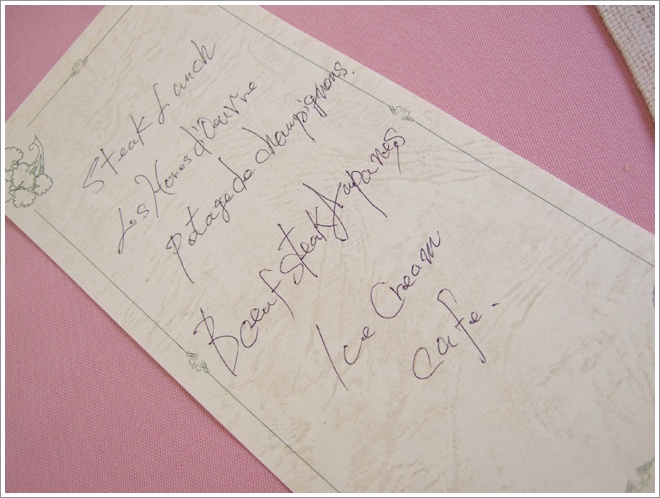 Steak Lunch
Les Hores d'Oeuvre
Potage de champignons.
Boeuf Steak Japanes
Ice Cream
Cafe.